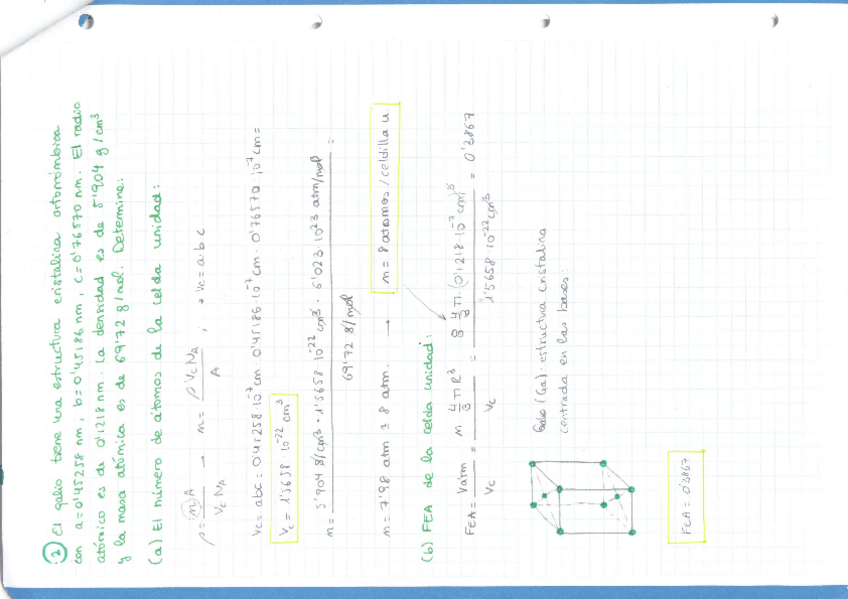 ② El galio tiene una estructura cristalina ortorrómbica
con a=0'45258 nm, b=0'45186 nm, c=0'76570 nm. El radio
atómico es de 0'1218 nm. La densidad es de 5'904 g/cm³
y la masa atómica es de 69'72 g/mol. Determine:
(a) El número de átomos de la celda unidad:
ρ = nA / Vc NA → n = ρ Vc NA / A ; * Vc = a·b·c
Vc = abc = 0'45258·10⁻⁷ cm 0'45186·10⁻⁷ cm · 0'76570·10⁻⁷ cm =
Vc = 1'5658·10⁻²² cm³
n = 5'904 g/cm³ · 1'5658 10⁻²² cm³ · 6'023·10²³ atm/mol / 69'72 g/mol =
n = 7'98 atm ≅ 8 atm. → n = 8 atomos/celdilla u.
(b) FEA de la celda unidad:
FEA = Vatm / Vc = n 4/3 π R³ / Vc = 8 4/3 π·(0'1218·10⁻⁷ cm)³ / 1'5658·10⁻²² cm³ = 0'3867
Galio (Ga): estructura cristalina
centrada en las bases:
FEA = 0'3867